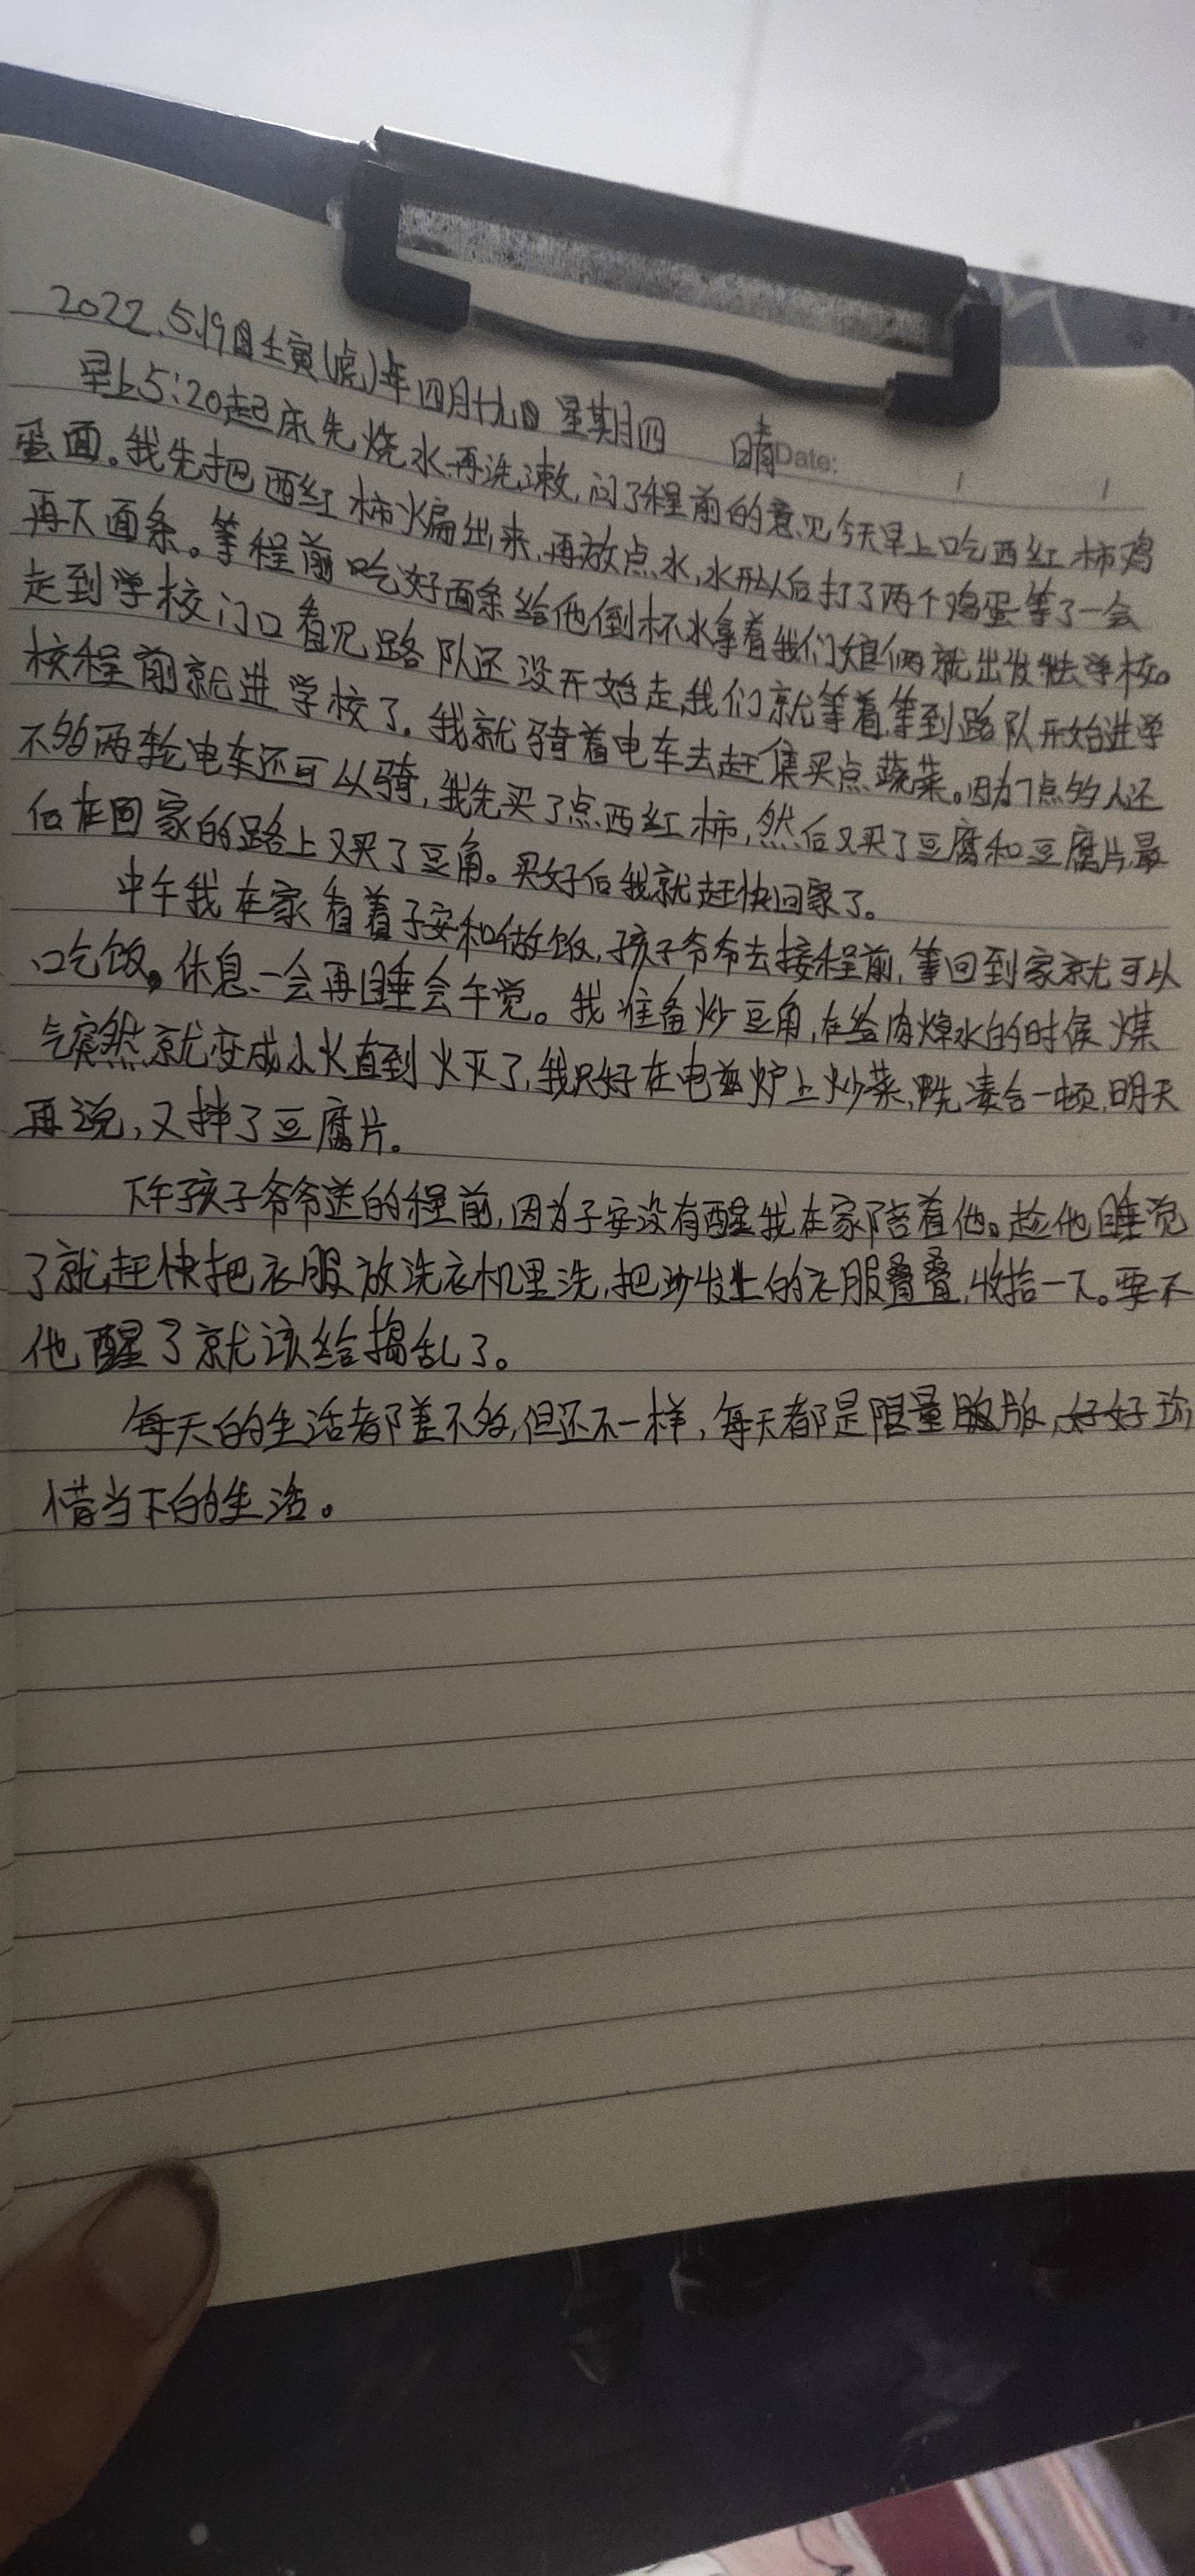 2022.5.19日壬寅(虎)年四月十九日 星期四 晴 Date: / /
早上5:20起床先烧水再洗漱,问了程前的意见今天早上吃西红柿鸡
蛋面。我先把西红柿火扁出来,再放点水,水开以后打了两个鸡蛋等了一会
再下面条。等程前吃好面条给他倒杯水拿着我们娘俩就出发去学校。
走到学校门口看见路队还没开始走,我们就等着,等到路队开始进学
校程前就进学校了。我就骑着电车去赶集买点蔬菜。因为7点多人还
不多两轮电车还可以骑,我先买了点西红柿,然后又买了豆腐和豆腐片,最
后在回家的路上又买了豆角。买好后我就赶快回家了。
中午我在家看着子安和做饭,孩子爷爷去接程前,等回到家就可以
吃饭。休息一会再睡会午觉。我准备炒豆角,在给肉焯水的时候煤
气突然就变成小火直到火灭了,我只好在电兹炉上炒菜,先凑合一顿,明天
再说,又拌了豆腐片。
下午孩子爷爷送的程前,因为子安没有醒我在家陪着他。趁他睡觉
了就赶快把衣服放洗衣机里洗,把沙发上的衣服叠叠,收拾一下。要不
他醒了就该给捣乱了。
每天的生活都差不多,但还不一样,每天都是限量版,好好珍
惜当下的生活。